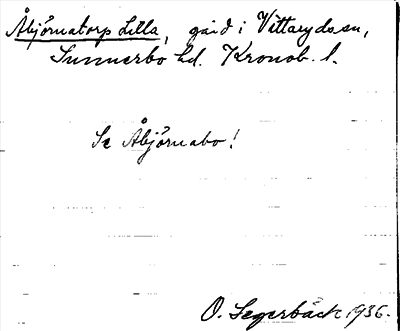 Åbjörnatorp Lilla, gård i Vittarydssn,
Sunnerbo hd. Kronob. l.
Se Åbjörnabo!
O. Segerbäck 1936.